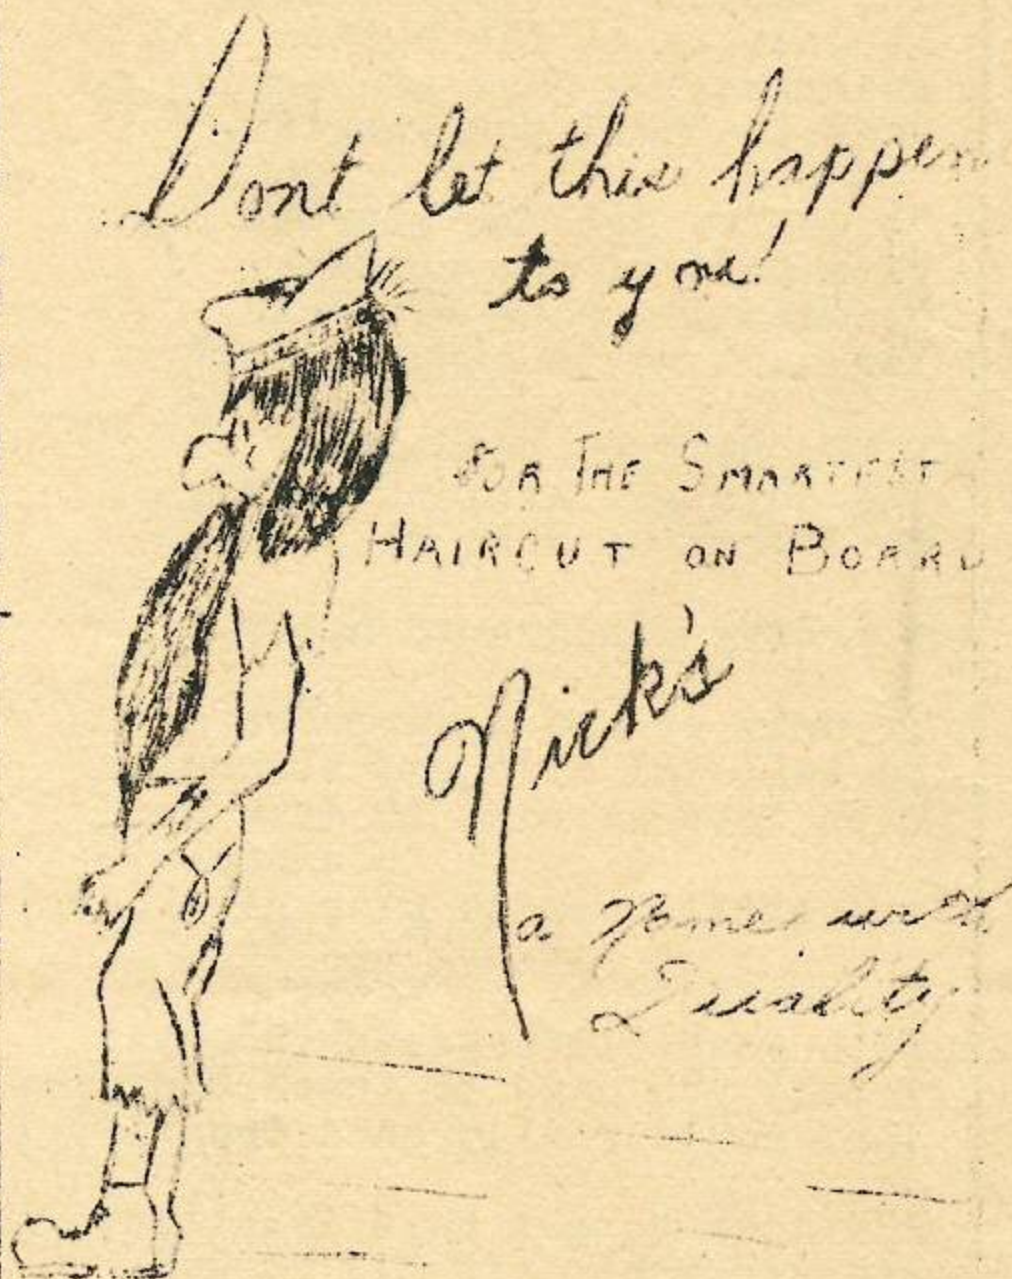 Dont let this happen
to you!
FOR THE SMARTEST
HAIRCUT ON BOARD
Nick's
a Name with
Quality